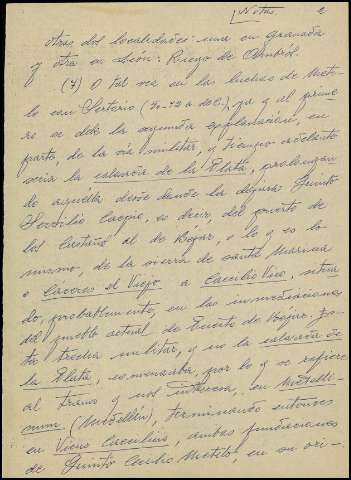 Notas. 2
otras dos localidades: una en Granada
y otra en León: Riego de Ambrós.
(7) O tal vez en las luchas de Mete-
lo con Sertorio (80-72 a. de C.), ya q al prime-
ro se debe la segunda explanación, en
parte, de la vía militar, q tiempo adelante
sería la calzada de la Plata, prolongan-
do aquélla desde donde la dejara Quinto
Servilio Caepio, es decir, del puerto de
los Castaños al de Béjar, o lo q es lo
mismo, de la sierra de Santa Marina
o Cáceres el Viejo a Caecilio Vico, situa-
do, probablemente, en las inmediaciones
del pueblo actual de Puerto de Bejar. Es-
ta trocha militar, q no la calzada de
la Plata, comenzaba, por lo q se refiere
al tramo q nos interesa, en Metelli-
num (Medellín), terminando entonces
en Vicus Caecilius, ambas fundaciones
de Quinto Cecilio Metelo, en su ori-